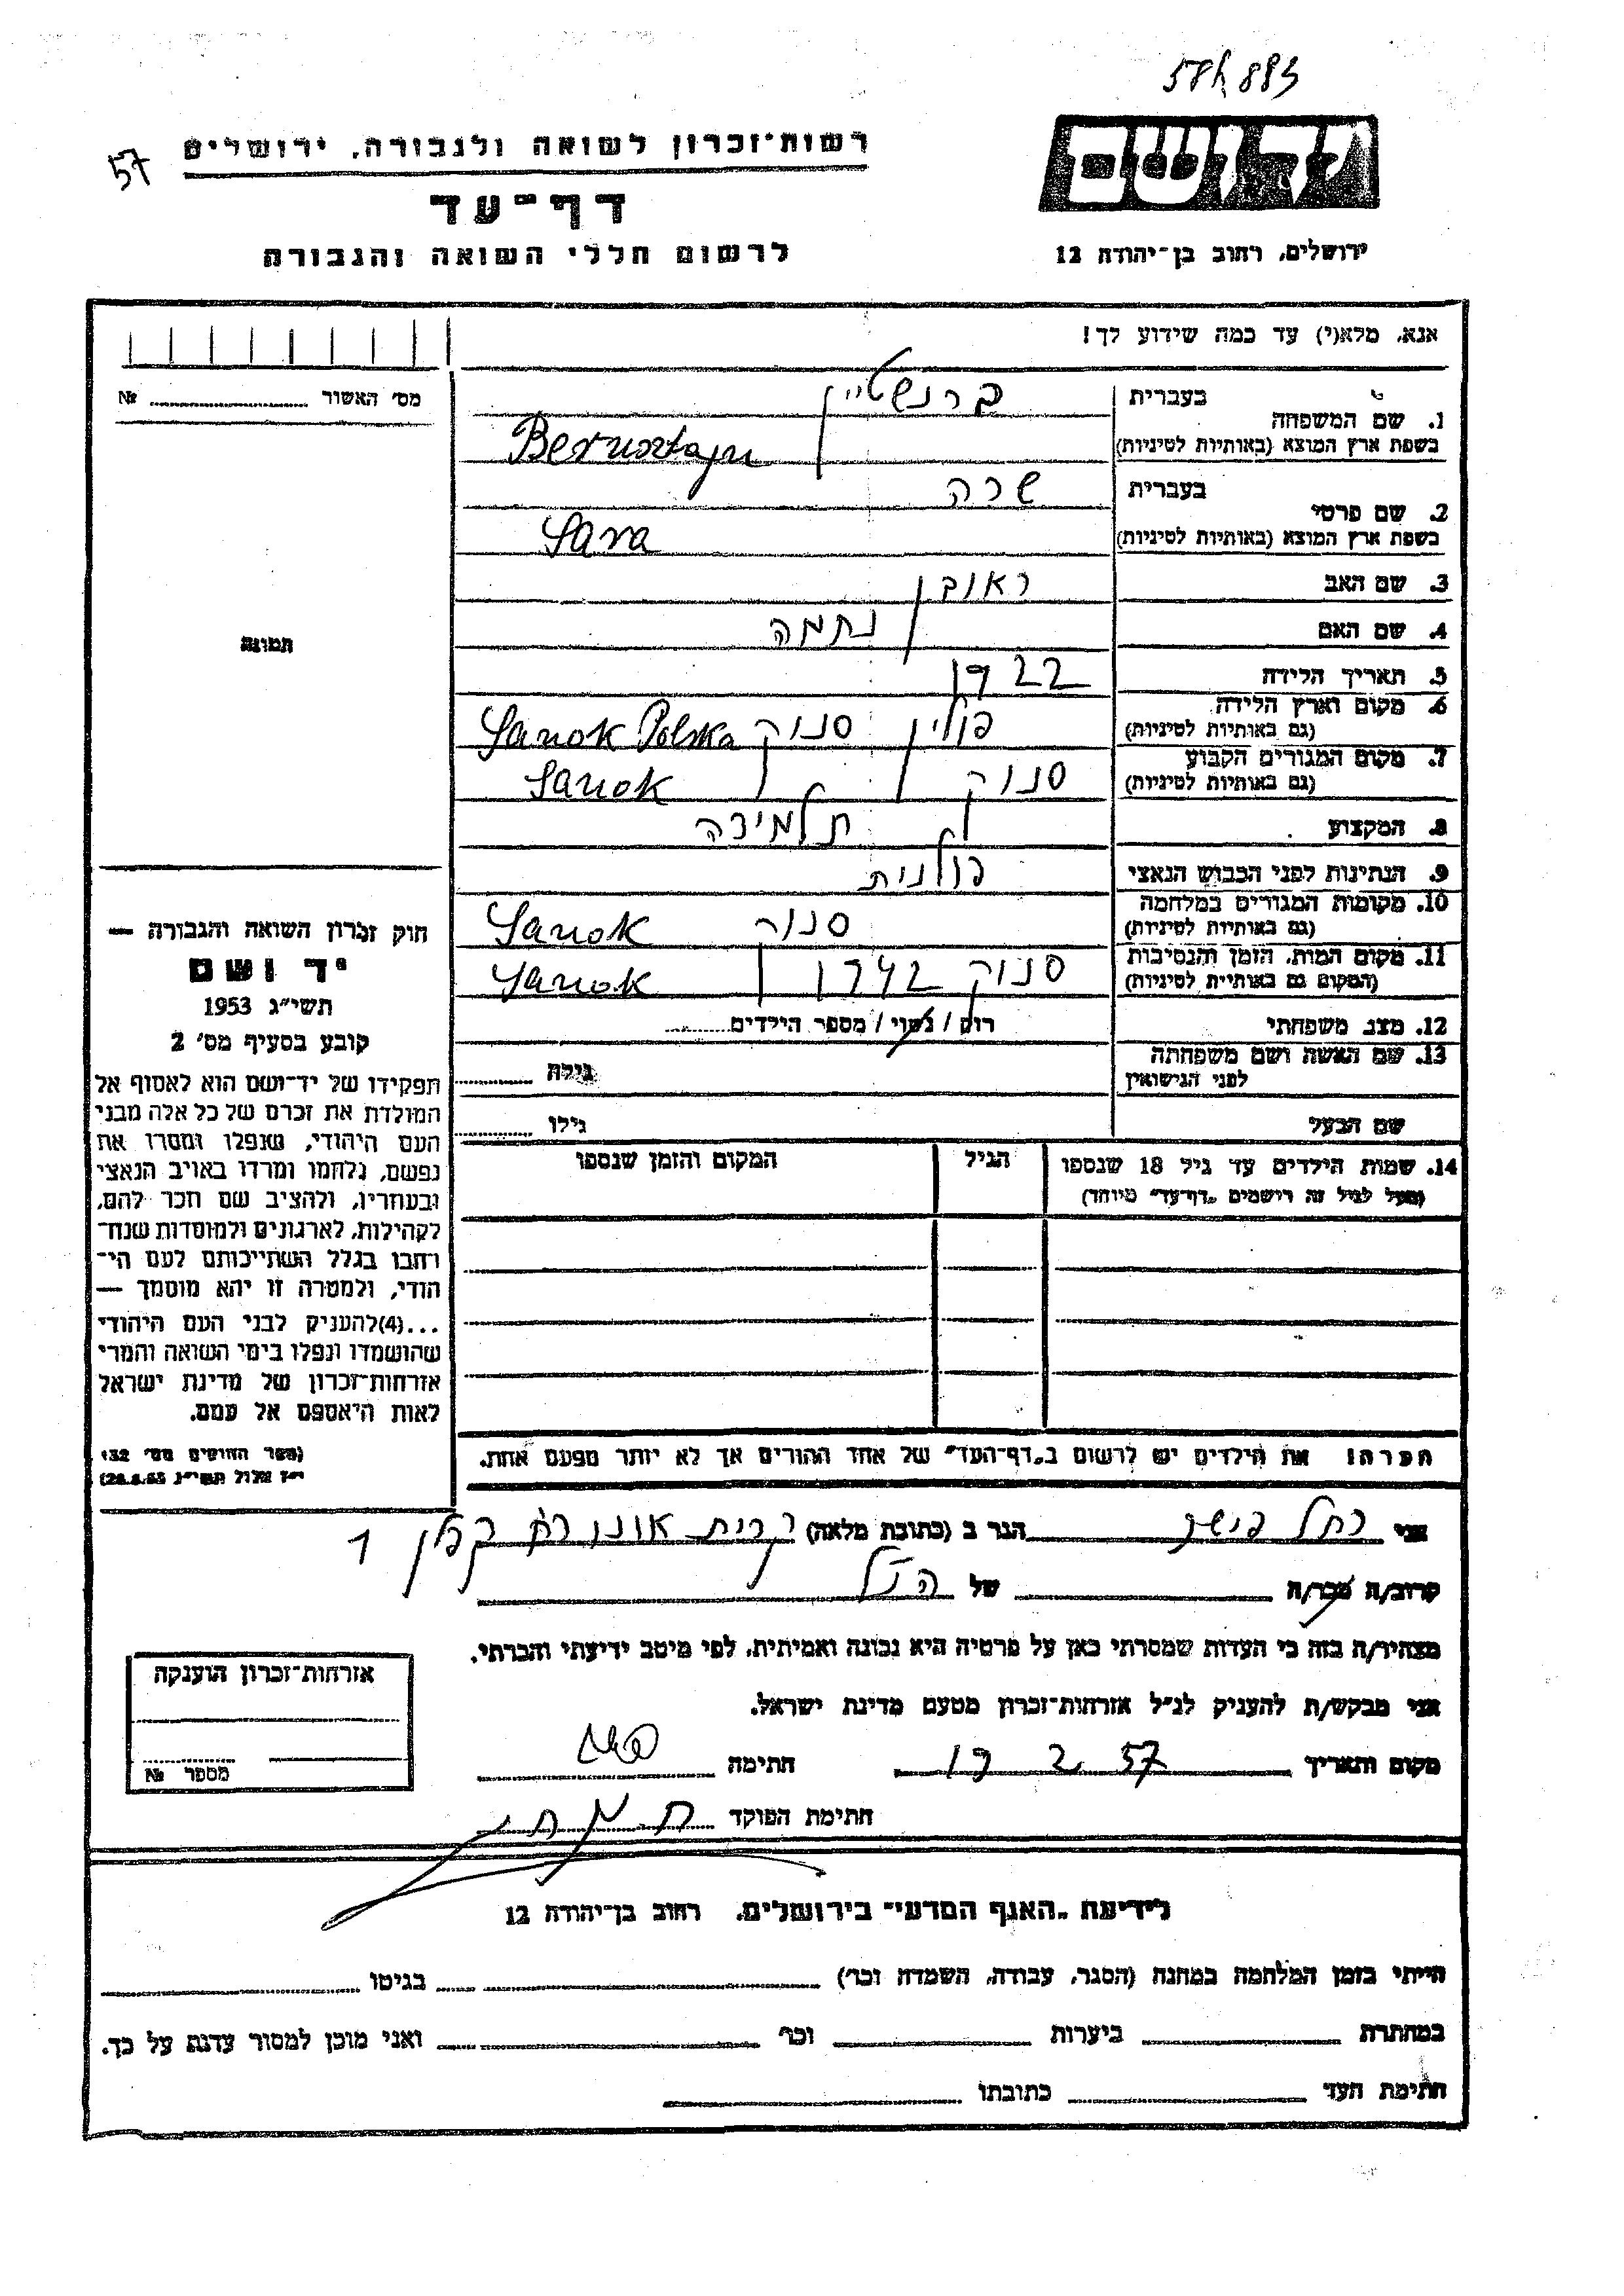 57
רשות־זכרון לשואה ולגבורה, ירושלים
יד ושם
דף־עד
לרשום חללי השואה והגבורה
ירושלים, רחוב בן־יהודה 12
אנא, מלא(י) עד כמה שידוע לך!
מס' האשור № 
1. שם המשפחה
בעברית ברנשטיין
בשפת ארץ המוצא (באותיות לטיניות) Bernsztajn
2. שם פרטי
בעברית שרה
בשפת ארץ המוצא (באותיות לטיניות) Sara
3. שם האב ראובן
4. שם האם נחמה
תמונה
5. תאריך הלידה 1922
6. מקום וארץ הלידה
(גם באותיות לטיניות) פולין סנוק Sanok Polska
7. מקום המגורים הקבוע
(גם באותיות לטיניות) סנוק Sanok
8. המקצוע תלמידה
9. הנתינות לפני הכבוש הנאצי פולנית
10. מקומות המגורים במלחמה
(גם באותיות לטיניות) סנוק Sanok
11. מקום המות, הזמן והנסיבות
(המקום גם באותיות לטיניות) סנוק 1942 Sanok
12. מצב משפחתי רוק / נשוי / מספר הילדים
13. שם האשה ושם משפחתה
לפני הנישואין
גילה
שם הבעל גילו
14. שמות הילדים עד גיל 18 שנספו הגיל המקום והזמן שנספו
(מעל לגיל זה רושמים "דף־עד" מיוחד)
חוק זכרון השואה והגבורה —
יד ושם
תשי"ג 1953
קובע בסעיף מס' 2
תפקידו של יד־ושם הוא לאסוף אל
המולדת את זכרם של כל אלה מבני
העם היהודי, שנפלו ומסרו את
נפשם, נלחמו ומרדו באויב הנאצי
ובעוזריו, ולהציב שם וזכר להם,
לקהילות, לארגונים ולמוסדות שנח־
רבו בגלל השתייכותם לעם הי־
הודי, ולמטרה זו יהא מוסמך —
...(4)להעניק לבני העם היהודי
שהושמדו ונפלו בימי השואה והמרי
אזרחות־זכרון של מדינת ישראל
לאות היאספם אל עמם.
(ספר החוקים מס' 132
י"ז אלול תשי"ג 28.8.53)
הערה! את הילדים יש לרשום ב"דף־העד" של אחד ההורים אך לא יותר מפעם אחת.
אני רחל פישר הגר ב (כתובת מלאה) קרית אונו רח' קפלן 1
קרוב/ה מכר/ה של הנ"ל
מצהיר/ה בזה כי העדות שמסרתי כאן על פרטיה היא נכונה ואמיתית, לפי מיטב ידיעתי והכרתי.
אני מבקש/ת להעניק לנ"ל אזרחות־זכרון מטעם מדינת ישראל.
מקום ותאריך 19 2 57 חתימה
חתימת הפוקד
אזרחות־זכרון הוענקה
מספר №
לידיעת "האגף המדעי" בירושלים, רחוב בן־יהודה 12
הייתי בזמן המלחמה במחנה (הסגר, עבודה, השמדה וכו') בגיטו
במחתרת ביערות וכו' ואני מוכן למסור עדות על כך.
חתימת העד כתובתו